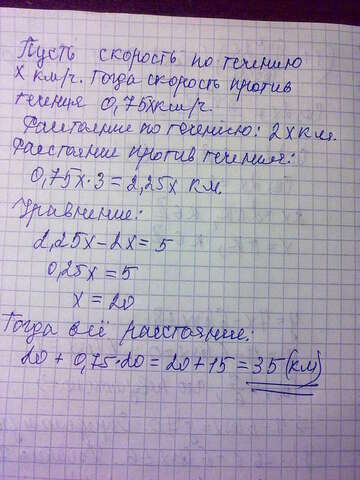 Пусть скорость по течению
х км/ч. Тогда скорость против
течения 0,75х км/ч.
Расстояние по течению: 2х км.
Расстояние против течения:
0,75х·3=2,25х км.
Уравнение:
2,25х-2х=5
0,25х=5
х=20
Тогда всё расстояние:
20+0,75·20=20+15=35(км)